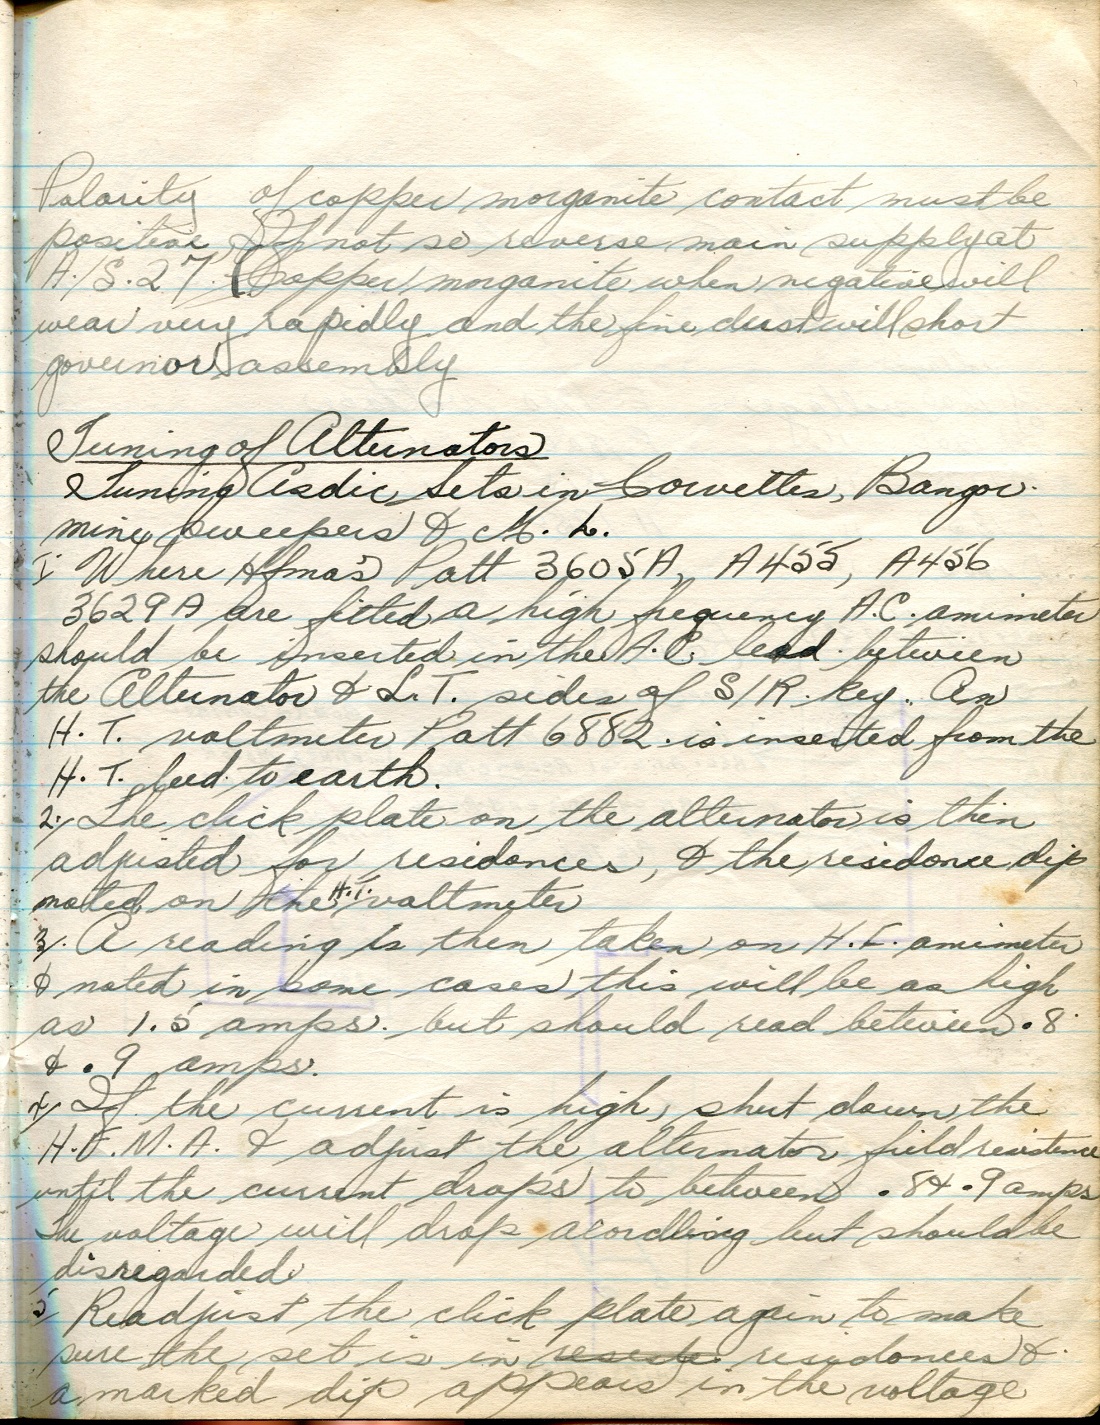 Polarity of copper morganite contact must be
positive If not so reverse main supply at
A./S.27. (Copper morganite when negative will
wear very rapidly and the fine dust will short
governor assembly
Tuning of Alternators
Tuning Asdic Sets in Corvettes, Bangor
mine sweepers & M. L.
1. Where Hfmas Patt 3605A, A455, A456
3629A are fitted a high frequency A.C. amimeter
should be inserted in the A.C. lead between
the Alternator & L.T. sides of S/R key. An
H.T. voltmeter Patt 6882 is inserted from the
H.T. feed to earth.
2. The click plate on the alternator is then
adjusted for residonces, & the residonce dip
noted on the H.T. voltmeter
3. A reading is then taken on H.F. amimeter
& noted in some cases this will be as high
as 1.5 amps. but should read between .8
& .9 amps.
4. If the current is high, shut down the
H.F.M.A. & adjust the alternator field resistence
until the current drops to between .8 & .9 amps
The voltage will drop acordling but should be
disregarded.
5 Readjust the click plate again to make
sure the set is in residonces &
a marked dip appears in the voltage